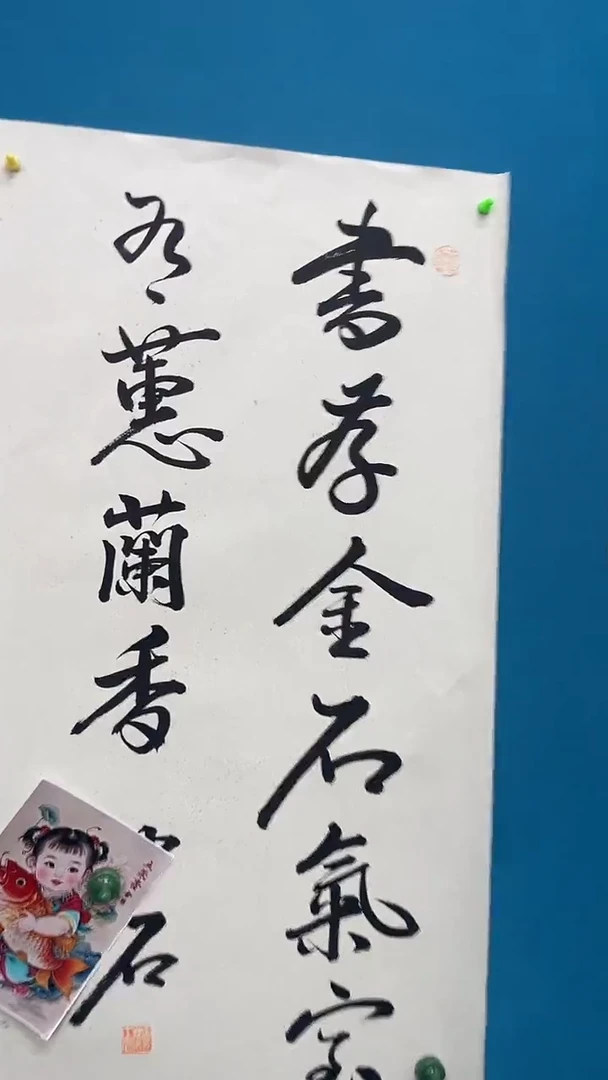 書存金石氣室
有蕙蘭香
石